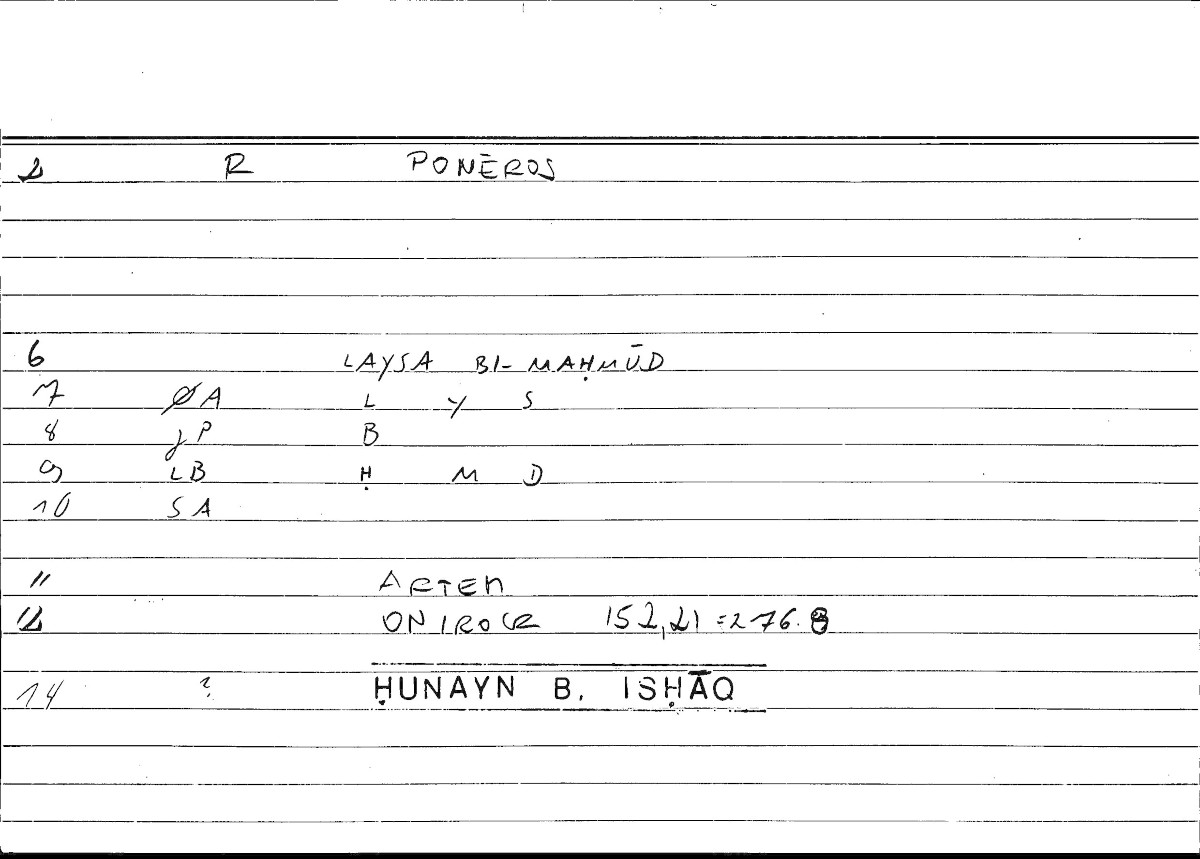 2 R PONĒROS
6 LAYSA BI-MAḤMŪD
7 ØA L Y S
8 γP B
9 LB Ḥ M D
10 SA
11 ARTEM
12 ONIROCR 152,21 = 276.8
14 ? ḤUNAYN B. ISḤĀQ